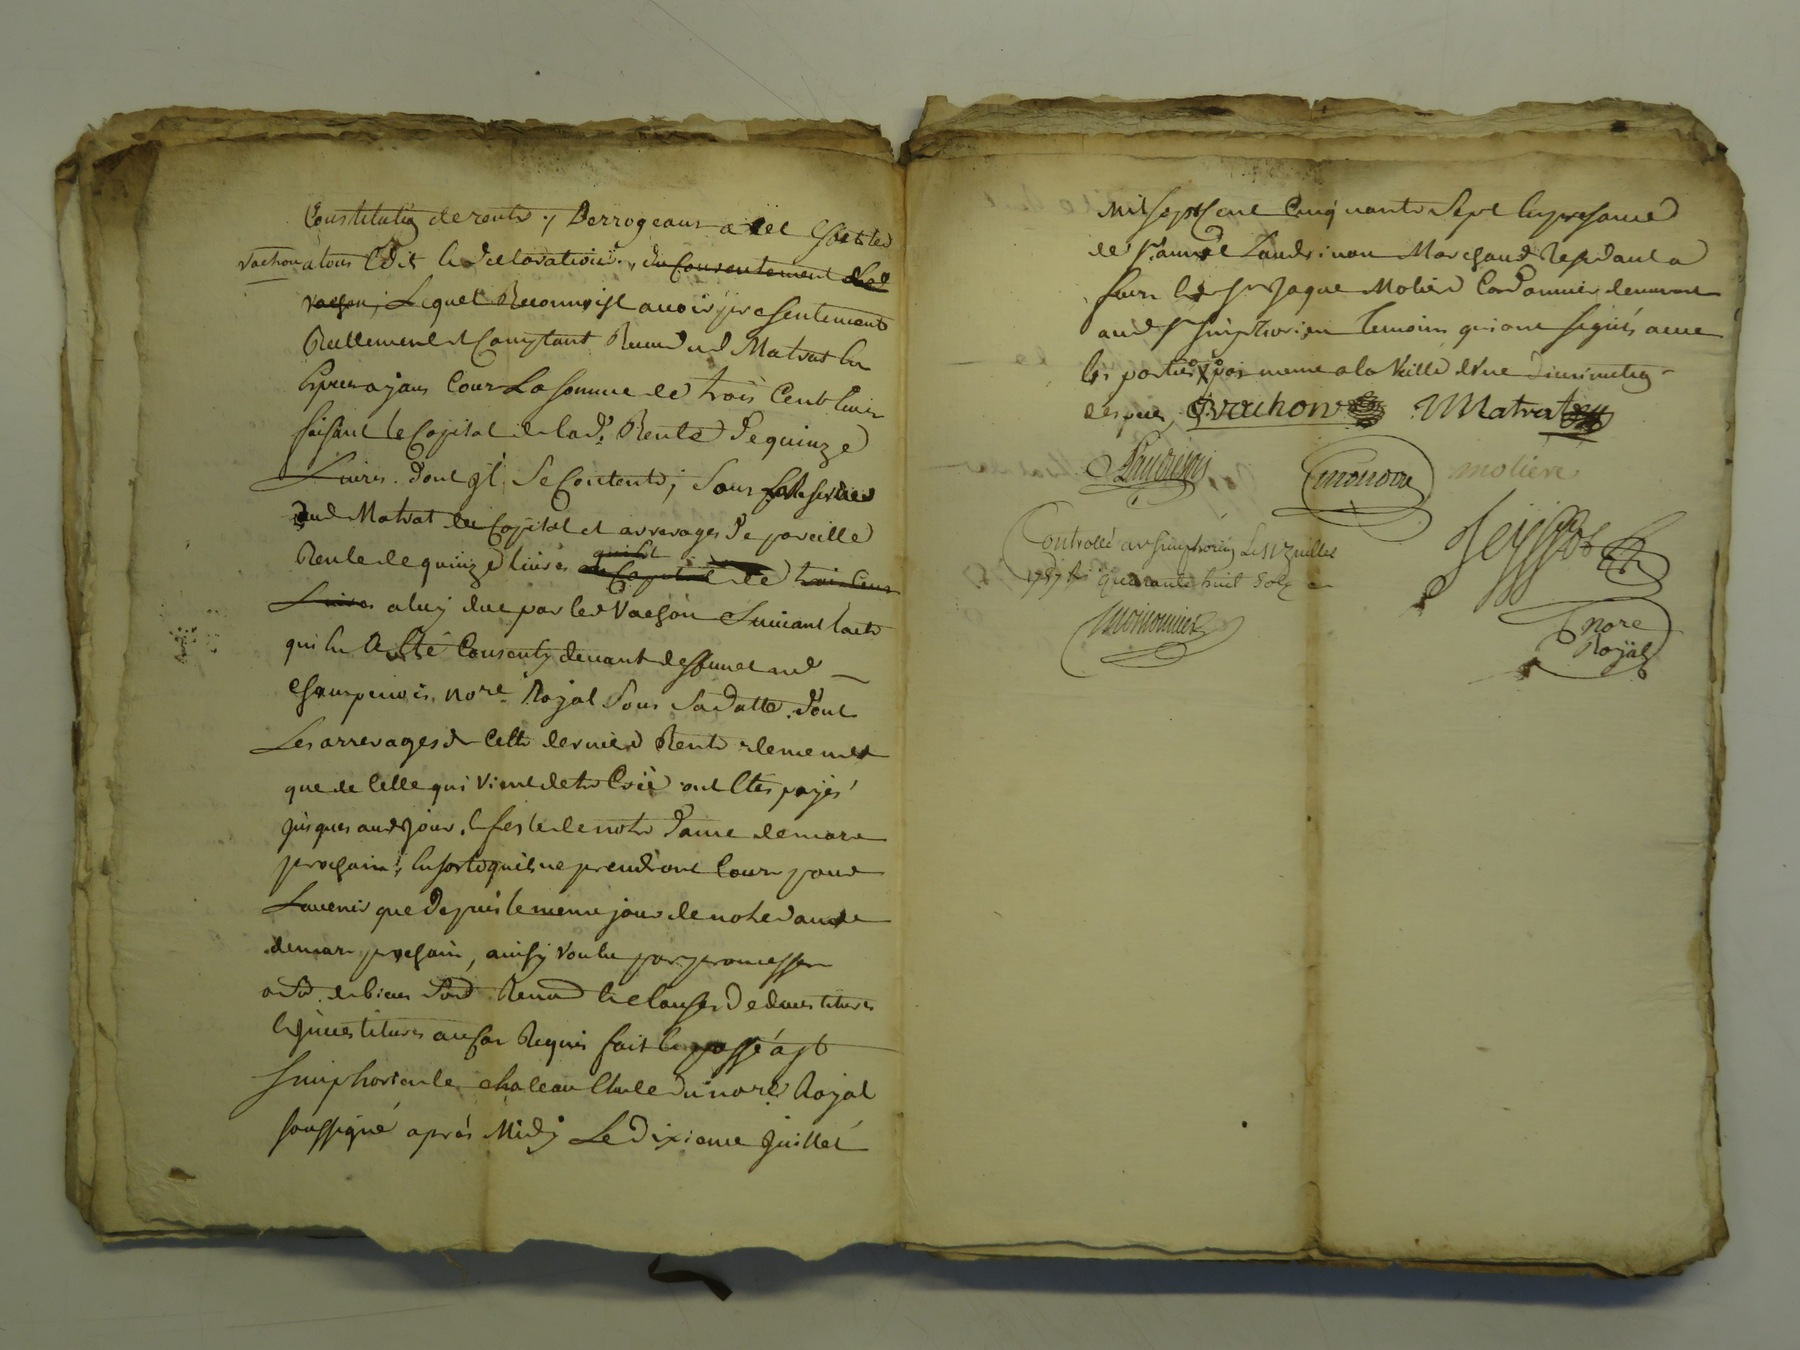 Constitution de rente, Derrogeant a cet Effet led
vachon a tous Edit et declaration, du Consentement dud
vachon, Lequel Reconnoist avoir presentement
Reellement et Comptant Receu dud Matrat en
Especes ayant Cour La somme de trois Cent livres
faisant le Capital de lad. Rente de quinze
Livres. Dont il Se Contente, Sans
aud Matrat du Capital et arrerages De pareille
Rente de quinze livres qui fit au Capital de trois Cent
Livres a luy due par led Vachon Suivant lacte
qui en a Eté Consenty devant deffunct md
Champenois, nore Royal Sous Sa datte. Dont
Les arrerages de Cette derniere Rente de meme
que de Celle qui Vient detre Créé ont Etés payés
Jusques aud Jour & feste de notre Dame de mars
prochain, En sorte quils ne prendront Cour pour
Lavenir que Depuis le meme jour de notre dame
de mars prochain, ainsy Voulu par promesses
de biens Renon & clauses De devestitures
& Jnvestitures au Cas Requis fait et passé a St
Simphorien le chateau Etude du nore Royal
soussigné après Midy Le Dixieme Juillet
Mil sept Cent Cinquante Sept En presance
de Sr. Landrivon Marchand Residant a
& Sr Jaque Molière Cordonnier demeurant
aud St Simphorien Temoins qui ont signés avec
les parties
des pnes, Vachon Matrat
molière
Controllé a St Simphorien Le 12 Juillet
1757 Rs quarante huit Sols
nore
Royal